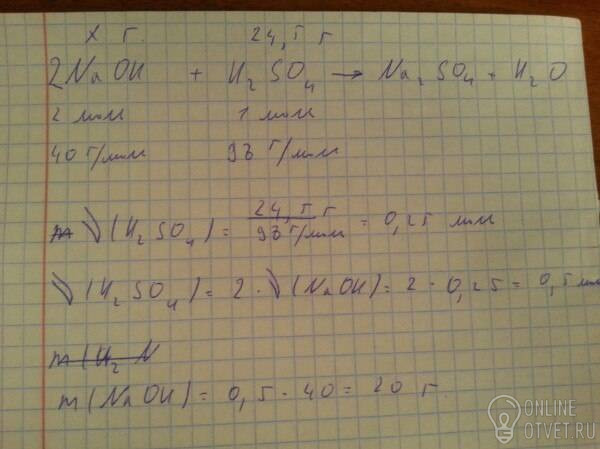 х г. 24,5 г
2NaOH + H₂SO₄ → Na₂SO₄ + H₂O
2 моль 1 моль
40 г/моль 98 г/моль
ν(H₂SO₄) = 24,5 г / 98 г/моль = 0,25 моль
ν(H₂SO₄) = 2 · ν(NaOH) = 2 · 0,25 = 0,5 моль
m(H₂ N
m(NaOH) = 0,5 · 40 = 20 г
ONLINE
OTVET.RU